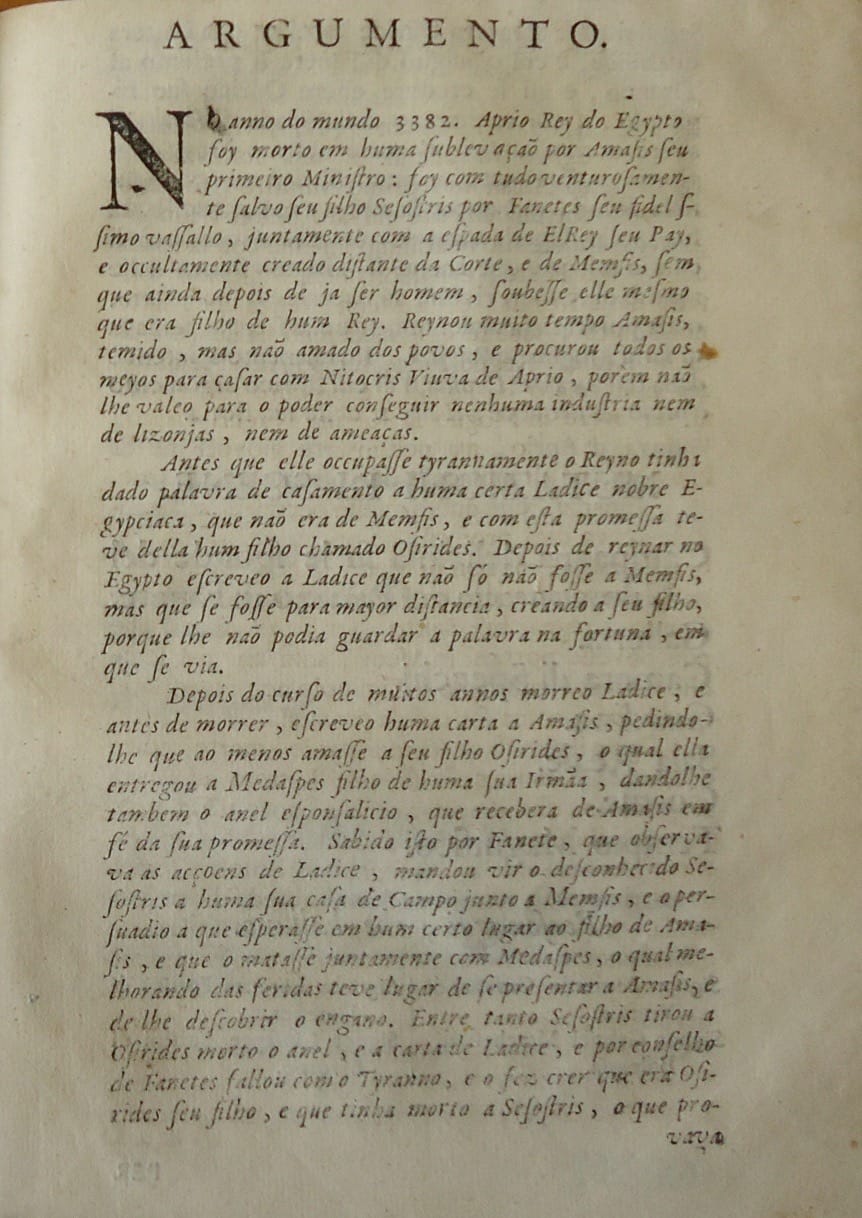 ARGUMENTO.
No anno do mundo 3382. Aprio Rey do Egypto
foy morto em huma ſublevação por Amaſis ſeu
primeiro Miniſtro: foy com tudo venturoſamen-
te ſalvo ſeu filho Seſoſtris por Fanetes ſeu fideliſ-
ſimo vaſſallo, juntamente com a eſpada de ElRey ſeu Pay,
e occultamente creado diſtante da Corte, e de Memfis, ſem
que ainda depois de ja ſer homem, ſoubeſſe elle meſmo
que era filho de hum Rey. Reynou muito tempo Amaſis,
temido, mas naõ amado dos povos, e procurou todos os
meyos para caſar com Nitocris Viuva de Aprio, porèm naõ
lhe valeo para o poder conſeguir nenhuma induſtria nem
de lizonjas, nem de ameaças.
Antes que elle occupaſſe tyrannamente o Reyno tinha
dado palavra de caſamento a huma certa Ladice nobre E-
gypciaca, que naõ era de Memfis, e com eſta promeſſa te-
ve della hum filho chamado Oſirides. Depois de reynar no
Egypto eſcreveo a Ladice que naõ ſó naõ foſſe a Memfis,
mas que ſe foſſe para mayor diſtancia, creando a ſeu filho,
porque lhe naõ podia guardar a palavra na fortuna, em
que ſe via.
Depois do curſo de muitos annos morreo Ladice, e
antes de morrer, eſcreveo huma carta a Amaſis, pedindo-
lhe que ao menos amaſſe a ſeu filho Oſirides, o qual ella
entregou a Medaſpes filho de huma ſua Irmãa, dandolhe
tambem o anel eſponſalicio, que recebera de Amaſis em
fé da ſua promeſſa. Sabido iſto por Fanete, que obſerva-
va as acçoens de Ladice, mandou vir o deſconhecido Se-
ſoſtris a huma ſua caſa de Campo junto a Memfis, e o per-
ſuadio a que eſperaſſe em hum certo lugar ao filho de Ama-
ſis, e que o mataſſe juntamente com Medaſpes, o qual me-
lhorando das feridas teve lugar de ſe preſentar a Amaſis, e
de lhe deſcobrir o engano. Entre tanto Seſoſtris tirou a
Oſirides morto o anel, e a carta de Ladice, e por conſelho
de Fanetes fallou com o Tyranno, e o fez crer que era Oſi-
rides ſeu filho, e que tinha morto a Seſoſtris, o que pro-
vava